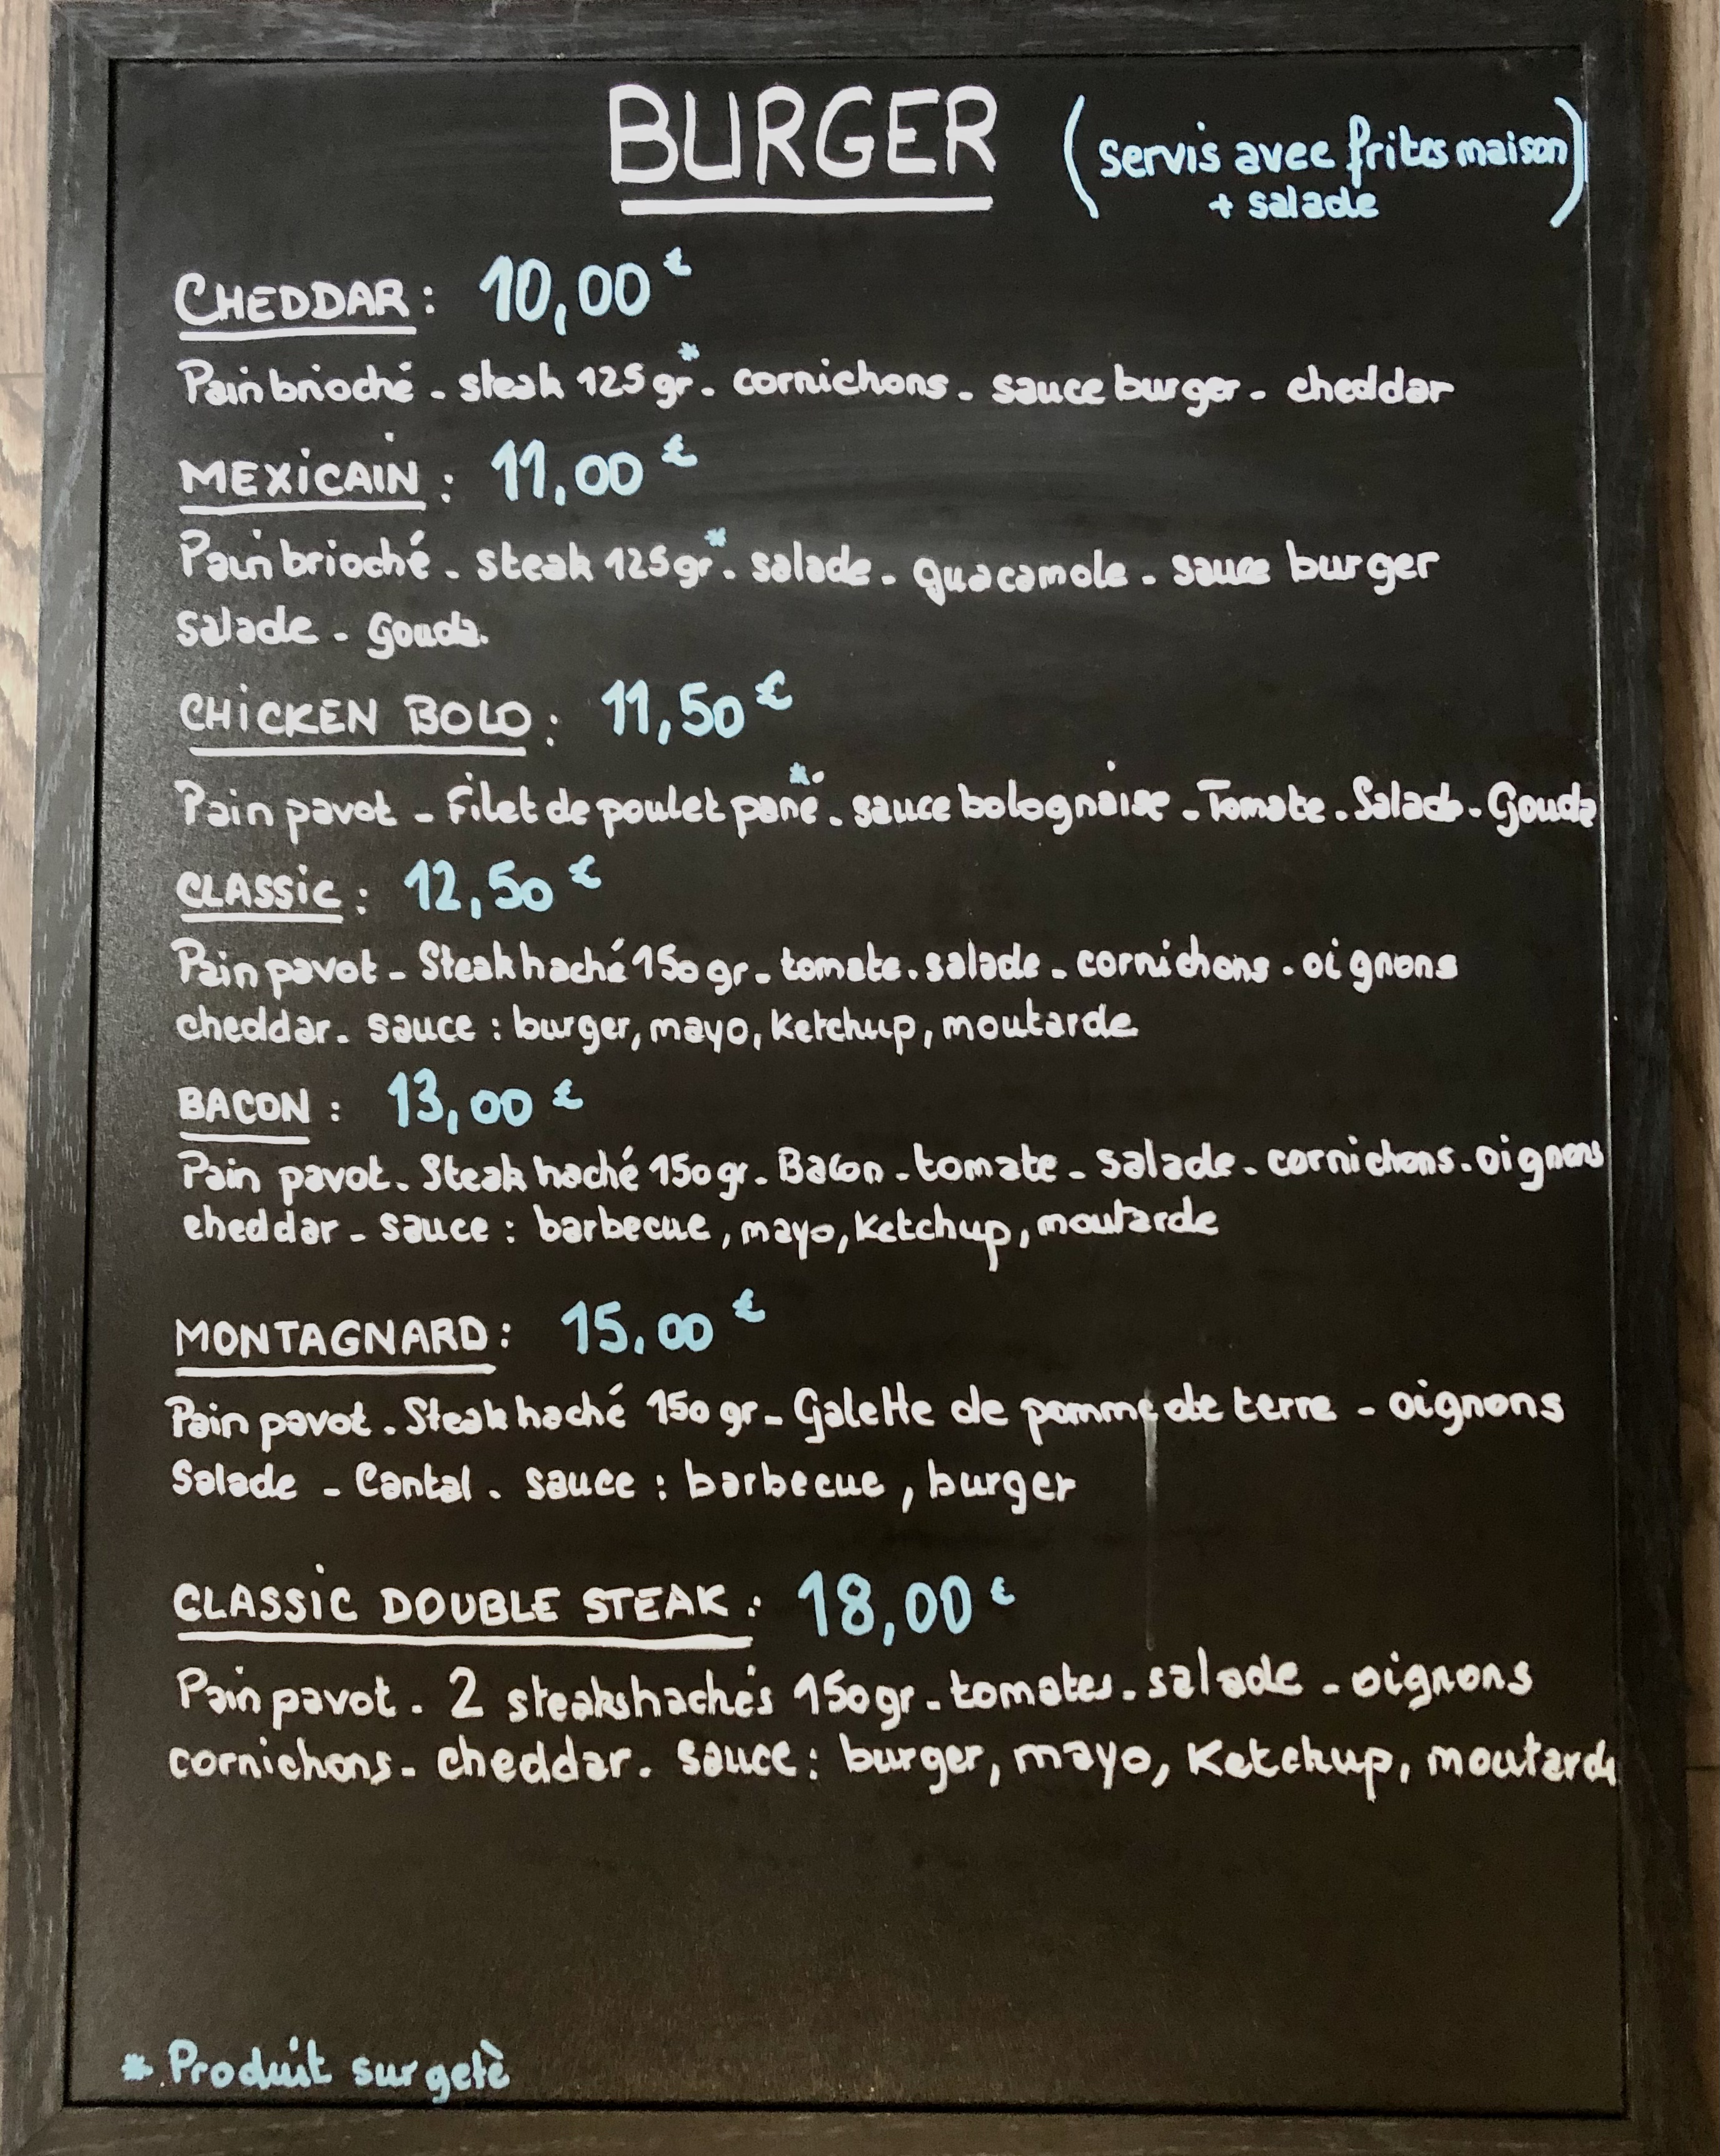 BURGER (servis avec frites maison)
+ salade
CHEDDAR : 10,00 €
Pain brioché - steak 125 gr* - cornichons - sauce burger - cheddar
MEXICAIN : 11,00 €
Pain brioché - steak 125 gr* - salade - guacamole - sauce burger
salade - gouda.
CHICKEN BOLO : 11,50 €
Pain pavot - Filet de poulet pané* - sauce bolognaise - Tomate - Salade - Gouda
CLASSIC : 12,50 €
Pain pavot - Steak haché 150 gr - tomate - salade - cornichons - oignons
cheddar - sauce : burger, mayo, Ketchup, moutarde
BACON : 13,00 €
Pain pavot - Steak haché 150 gr - Bacon - tomate - salade - cornichons - oignons
cheddar - sauce : barbecue, mayo, Ketchup, moutarde
MONTAGNARD : 15,00 €
Pain pavot - Steak haché 150 gr - Galette de pomme de terre - oignons
Salade - Cantal - sauce : barbecue, burger
CLASSIC DOUBLE STEAK : 18,00 €
Pain pavot - 2 steaks hachés 150 gr - tomates - salade - oignons
cornichons - cheddar - sauce : burger, mayo, Ketchup, moutarde
* Produit surgelè